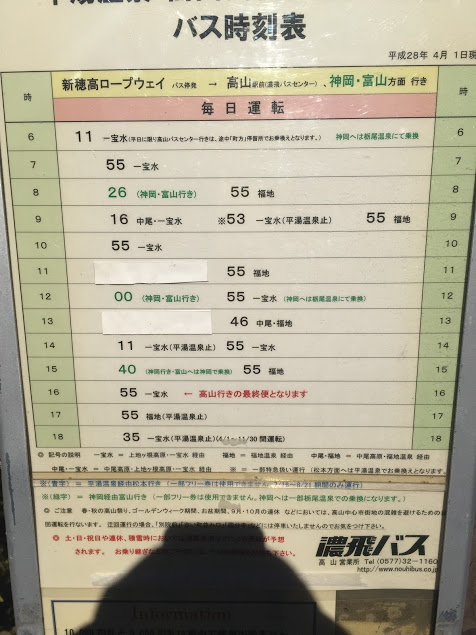 バス時刻表
平成28年 4月 1日現
時 新穂高ロープウェイ バス停発 → 高山駅前(濃飛バスセンター)、神岡・富山方面 行き 時
毎日運転
6 11 一宝水(平日に限り高山バスセンター行きは、途中「町方」停留所でお乗換えとなります。) 神岡へは栃尾温泉にて乗換 6
7 55 一宝水 7
8 26 (神岡・富山行き) 55 福地 8
9 16 中尾・一宝水 ※53 一宝水(平湯温泉止) 55 福地 9
10 55 一宝水 10
11 55 福地 11
12 00 (神岡・富山行き) 55 一宝水 (神岡へは栃尾温泉にて乗換) 12
13 46 中尾・福地 13
14 11 一宝水(平湯温泉止) 55 一宝水 14
15 40 (神岡行き・富山へは神岡で乗換) 55 福地 15
16 55 一宝水 ← 高山行きの最終便となります 16
17 55 福地(平湯温泉止) 17
18 35 一宝水(平湯温泉止)(4/1～11/30 間運転) 18
◎ 記号の説明 一宝水 = 上地ヶ根高原・一宝水 経由 福地 = 福地温泉 経由 中尾・福地 = 中尾高原・福地温泉 経由
中尾・一宝水 = 中尾高原・上地ヶ根高原・一宝水 経由 ※ = 一部特急扱い運行 (松本方面へは平湯温泉でお乗換えとなります。)
※(青字) = 平湯温泉経由松本行き (一部フリー券は使用できません。
※(緑字) = 神岡経由富山行き (一部フリー券は使用できません。神岡へは一部栃尾温泉での乗換になります。)
◎ ご注意 春・秋の高山祭り、ゴールデンウィーク期間、お盆期間、9月・10月の連休 などにおいては、高山中心市街地の混雑を避けるための
回運転を行ないます。 迂回運行の場合、「別院前
には停車いたしませんのでお気をつけ下さい。
◎ 土・日・祝日や連休、積雪時においては
が予想
されます。 お乗り継ぎ
濃飛バス
高山営業所 Tel (0577)32-1160
http://www.nouhibus.co.jp
Information